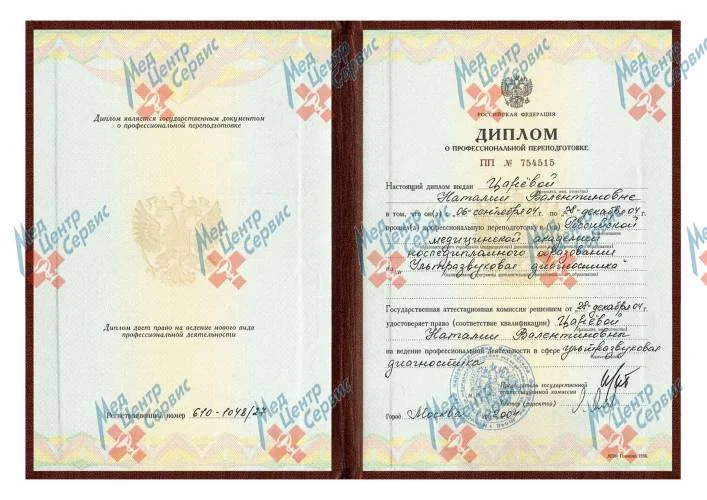 Диплом является государственным документом
о профессиональной переподготовке
Диплом дает право на ведение нового вида
профессиональной деятельности
Регистрационный номер 610-1048/27
РОССИЙСКАЯ ФЕДЕРАЦИЯ
ДИПЛОМ
О ПРОФЕССИОНАЛЬНОЙ ПЕРЕПОДГОТОВКЕ
ПП № 754515
Настоящий диплом выдан Царёвой
(фамилия, имя, отчество)
Наталии Валентиновне
в том, что он(а) с „06" сентября 04 г. по „28" декабря 04 г.
прошел(а) профессиональную переподготовку в (на) Российской
медицинской академии
последипломного образования
по „Ультразвуковая диагностика"
Государственная аттестационная комиссия решением от „28" декабря 04 г.
удостоверяет право (соответствие квалификации) Царёвой
(фамилия, имя, отчество)
Наталии Валентиновны
на ведение профессиональной деятельности в сфере ультразвуковая
диагностика
Председатель государственной
аттестационной комиссии
Ректор (директор)
Город Москва 2004
МедЦентрСервис